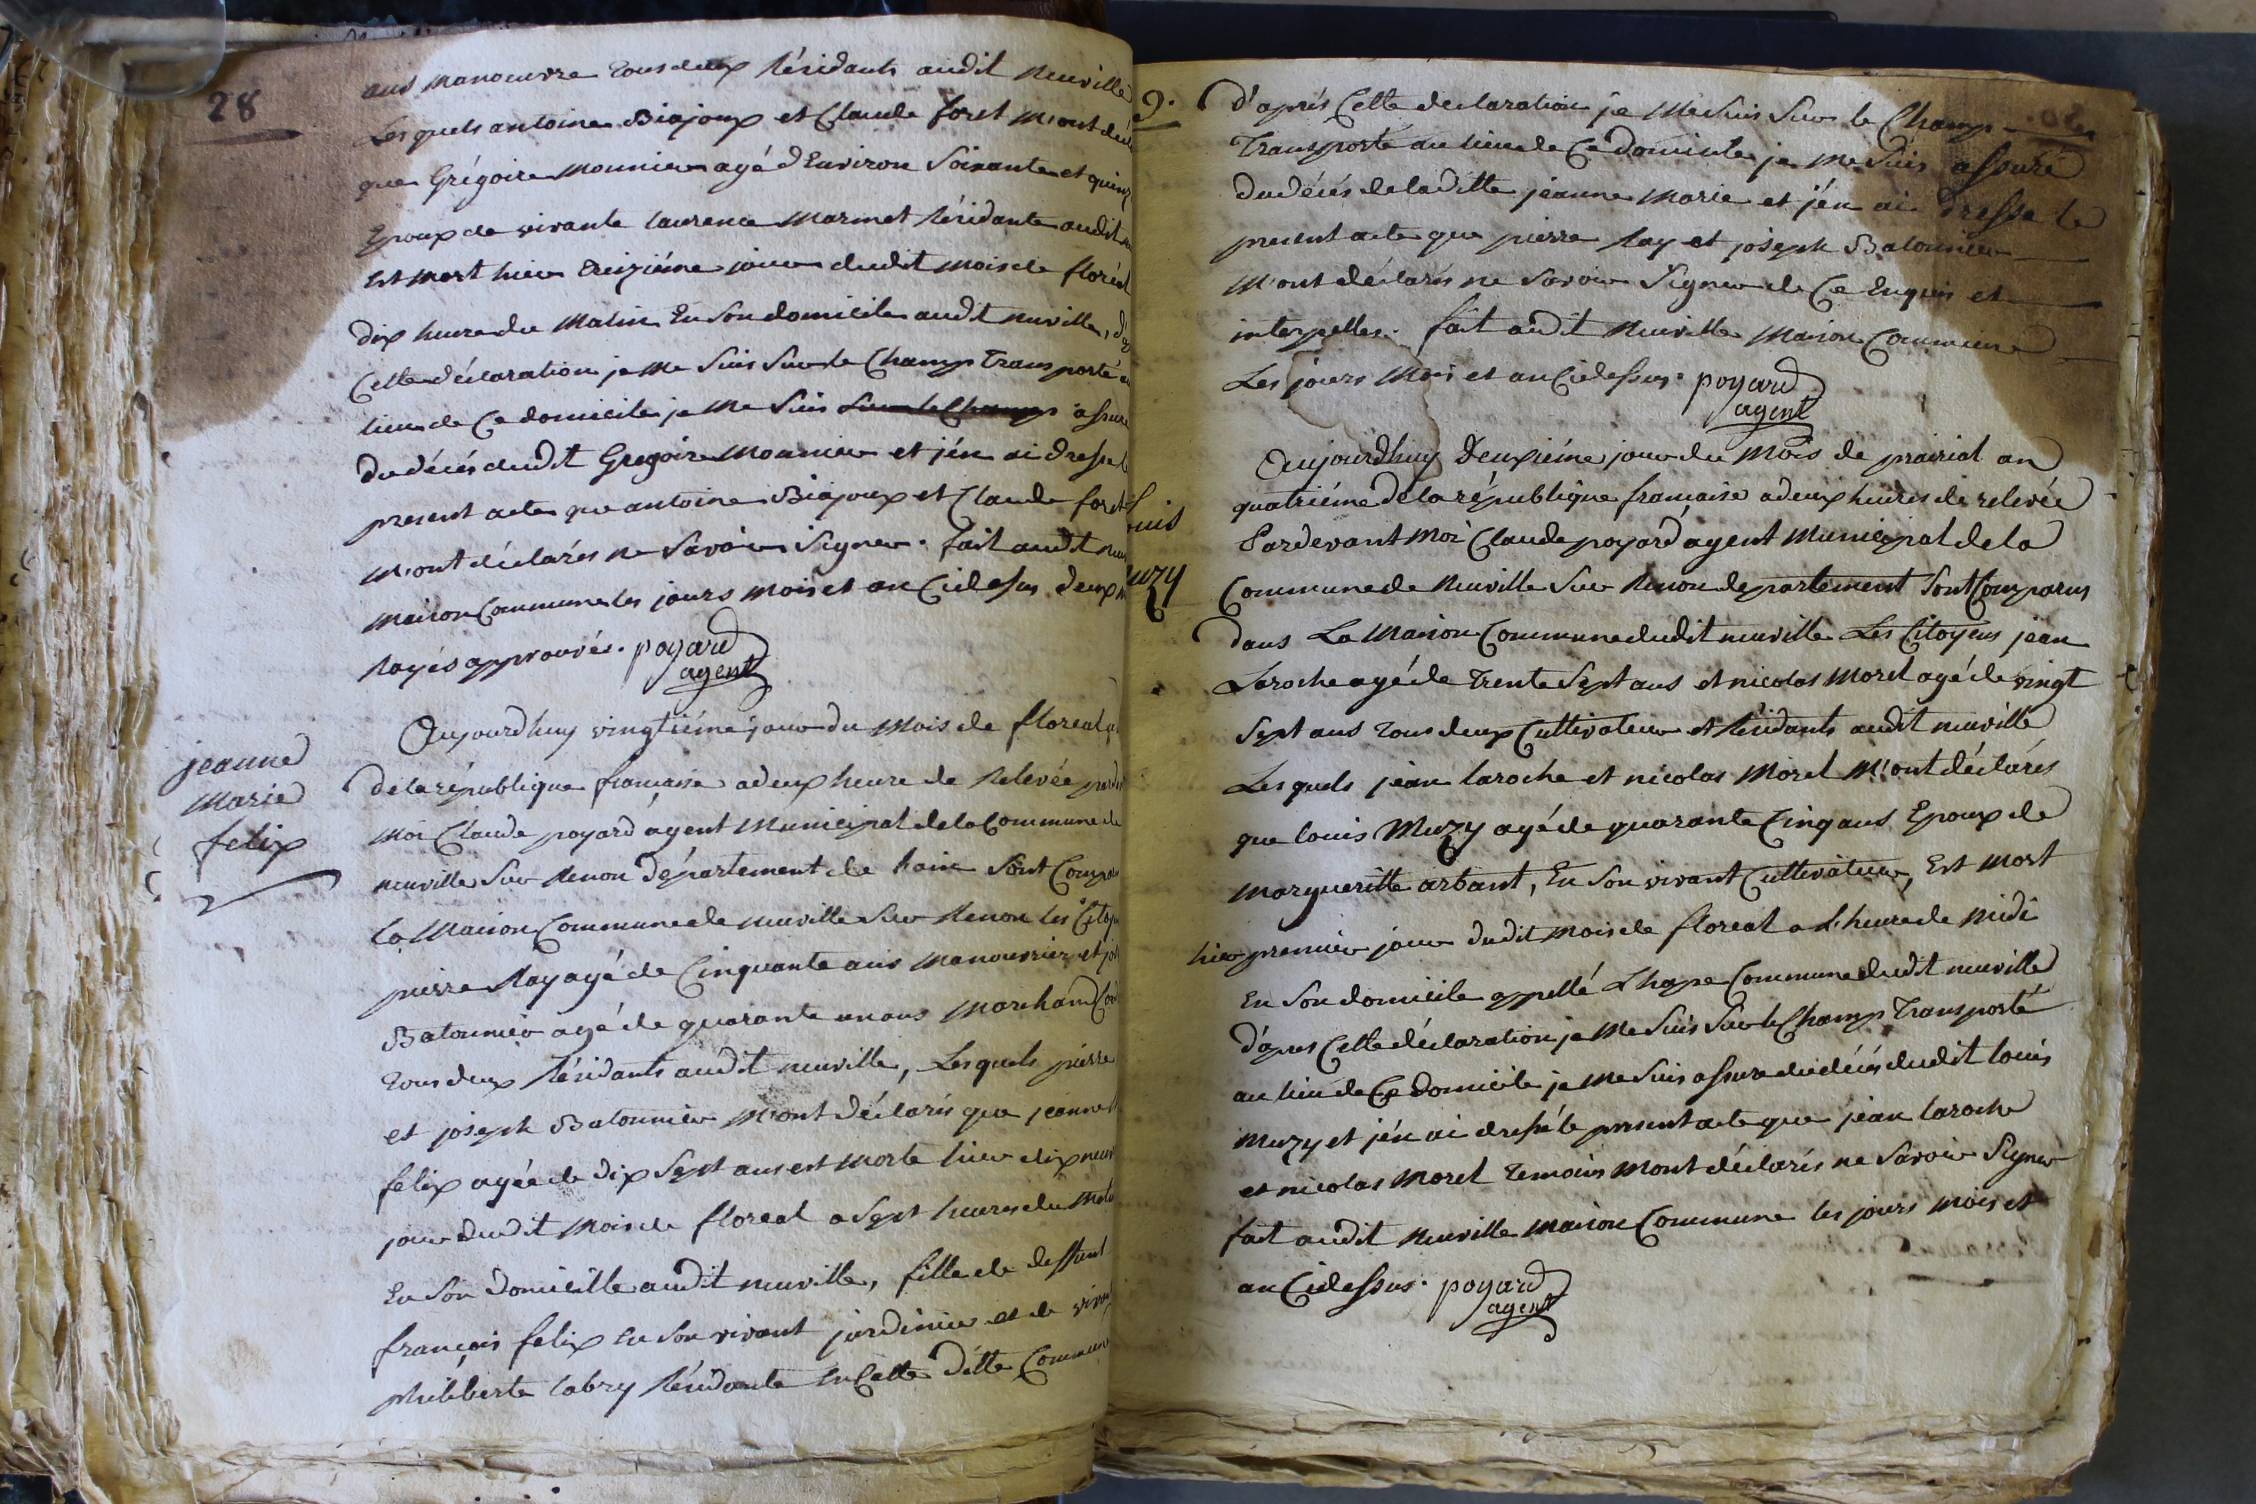 28
ans manouvre tous deux Résidants audit neuville
Les quels antoine Biajoux et Claude foret m'ont décl
que Grégoire Mounier agé d'Environ Soixante et quinz
Epoux de vivante laurence Marmet Résidante audit
Est mort hier treiziéme jour dudit mois de floréal
dix heure du matin En son domicile audit neuville,
Cette déclaration je me suis sur le Champ transporté
lieu de Ce domicile je me suis sur le Champ assuré
du décès dudit Gregoire Mounier et j'én ai dressé
present acte que antoine Biajoux et Claude foret
m'ont déclarés ne savoir signer. fait audit
maison Commune les jours mois et an Cidessus deux
Rayés approuvés. poyard
agent
jeanne
marie
felix
Aujourdhuy vingtiéme jour du mois de floreal
de la république francaise a deux heure de Relevée
moi Claude poyard agent municipal de la Commune de
neuville sur Renon département de l'ain sont
la maison Commune de neuville sur Renon les
pierre Ray agé de Cinquante ans manouvrier et
Batounier agé de quarante un ans marchand
tous deux Résidants audit neuville, Les quels pierre
et joseph Batounier m'ont déclarés que jeanne
felix agée de dix sept ans est morte hier dix neuv
jour dudit mois de floreal a sept heures du
En son domicille audit neuville, fille de deffunt
françois felix En son vivant jardinier et de
philiberte labry Résidante En Cette ditte Commune
9.
d'aprés Cette declaration je me suis sur le Champ
transporté au lieu de Ce domicile je me suis assuré
du décès de laditte jéanne Marie et j'én ai dressé le
present acte que pierre Ray et joseph Batounier
m'ont déclarés ne savoir signer de Ce Enquis et
interpellés. fait audit neuville maison Commune
Les jours mois et an Cidessus. poyard
agent
ouis
uzy
Aujourdhuy deuxiéme jour du mois de prairial an
quatriéme de la république francaise a deux heures de relevée
Pardevant moi Claude poyard agent municipal de la
Commune de neuville sur Renon departement sont Comparus
dans La maison Commune dudit neuville Les Citoyens jean
Laroche agé de trente sept ans et nicolas Morel agé de vingt
sept ans tous deux Cultivateur et Résidants audit neuville
Les quels jéan laroche et nicolas Morel m'ont déclarés
que louis Muzy agé de quarante Cinq ans Epoux de
margueritte arbant, En son vivant Cultivateur, Est mort
hier premier jour dudit mois de floreal a l'heure de midi
En son domicile appellé Lhape Commune dudit neuville
d'apres Cette déclaration je me suis sur le Champ transporté
au lieu de Ce domicile je me suis assuré du décés dudit louis
muzy et j'én ai dressé le present acte que jéan laroche
et nicolas Morel temoins m'ont déclarés ne savoir signer
fait audit neuville maison Commune les jours mois et
an Cidessus. poyard
agent